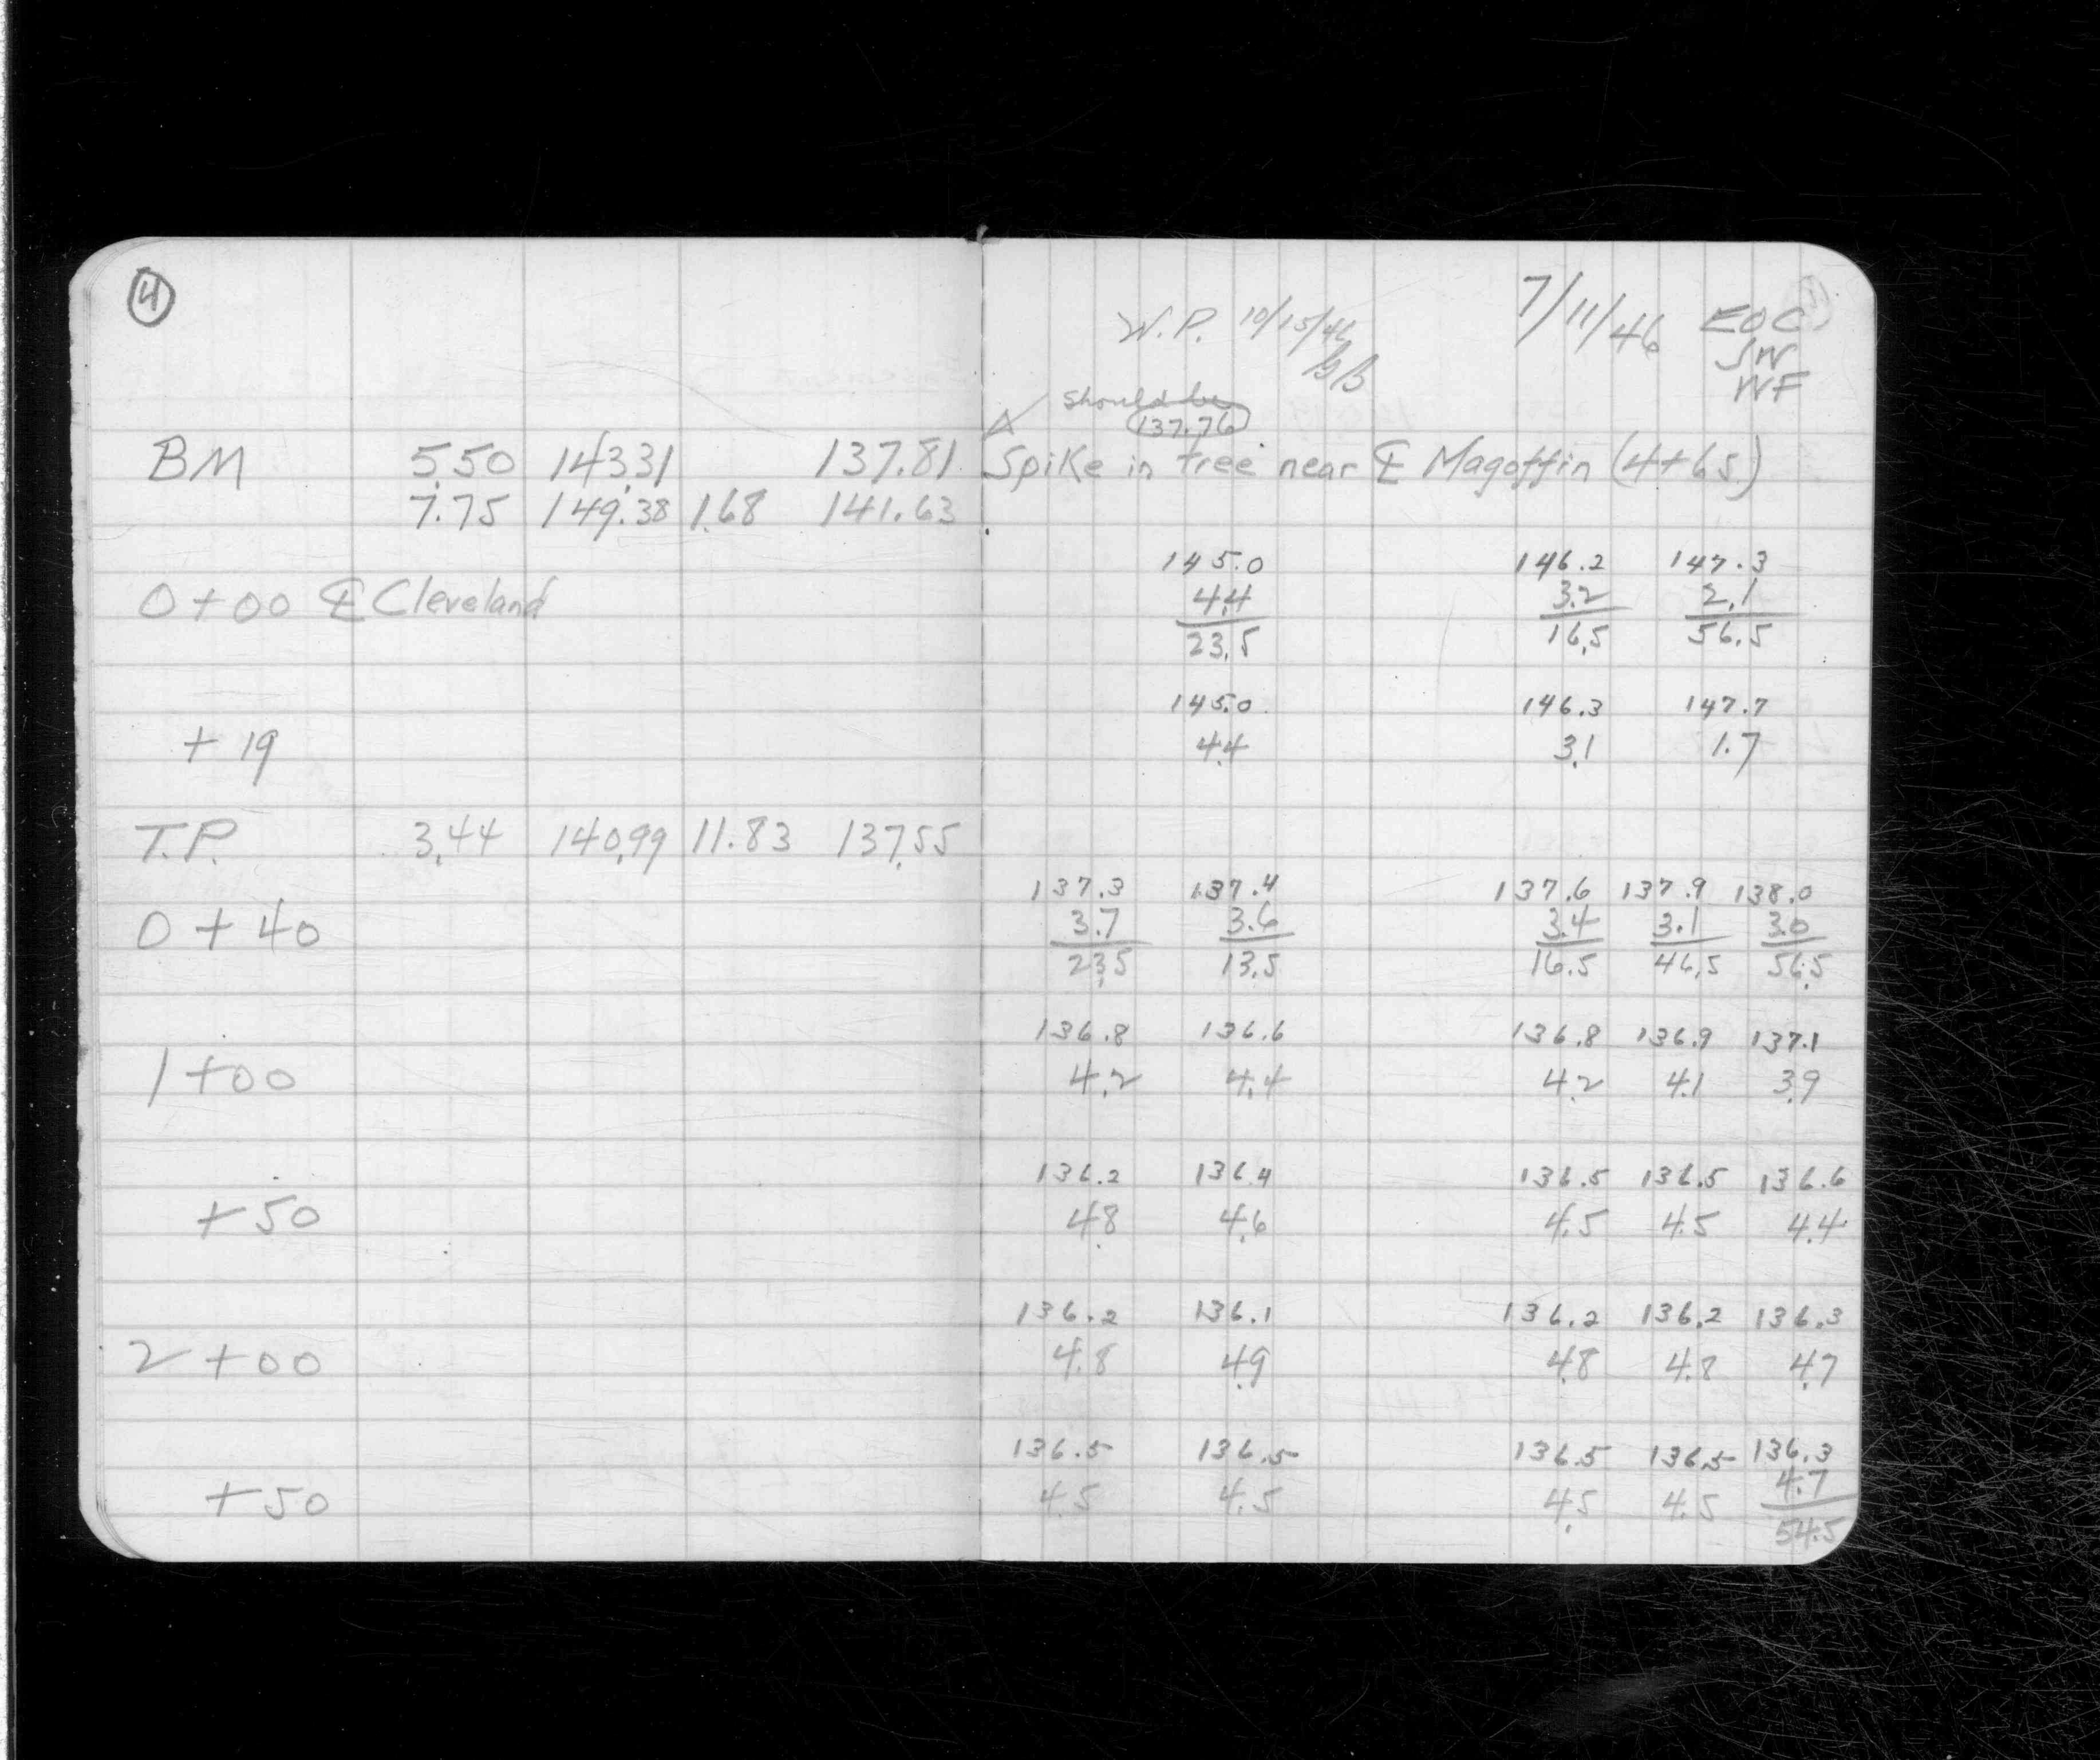 4
W.P. 10/15/46 7/11/46 EOC
BB JW
WF
should be
137.76
BM 5.50 143.31 137.81 Spike in tree near ℄ Magoffin (4+65)
7.75 149.38 1.68 141.63
145.0 146.2 147.3
0+00 ℄ Cleveland 4.4 3.2 2.1
23.5 16.5 56.5
145.0 146.3 147.7
+19 4.4 3.1 1.7
T.P. 3.44 140.99 11.83 137.55
137.3 137.4 137.6 137.9 138.0
0+40 3.7 3.6 3.4 3.1 3.0
23.5 13.5 16.5 46.5 56.5
136.8 136.6 136.8 136.9 137.1
1+00 4.2 4.4 4.2 4.1 3.9
136.2 136.4 136.5 136.5 136.6
+50 4.8 4.6 4.5 4.5 4.4
136.2 136.1 136.2 136.2 136.3
2+00 4.8 4.9 4.8 4.8 4.7
136.5 136.5 136.5 136.5 136.3
+50 4.5 4.5 4.5 4.5 4.7
54.5